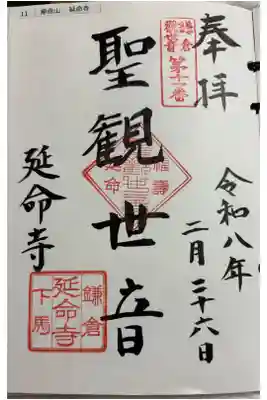 11 帰命山 延命寺
奉拝
鎌倉
第十一番
聖観世音
延命
令和八年
二月二十六日
延命寺
鎌倉
延命寺
下馬